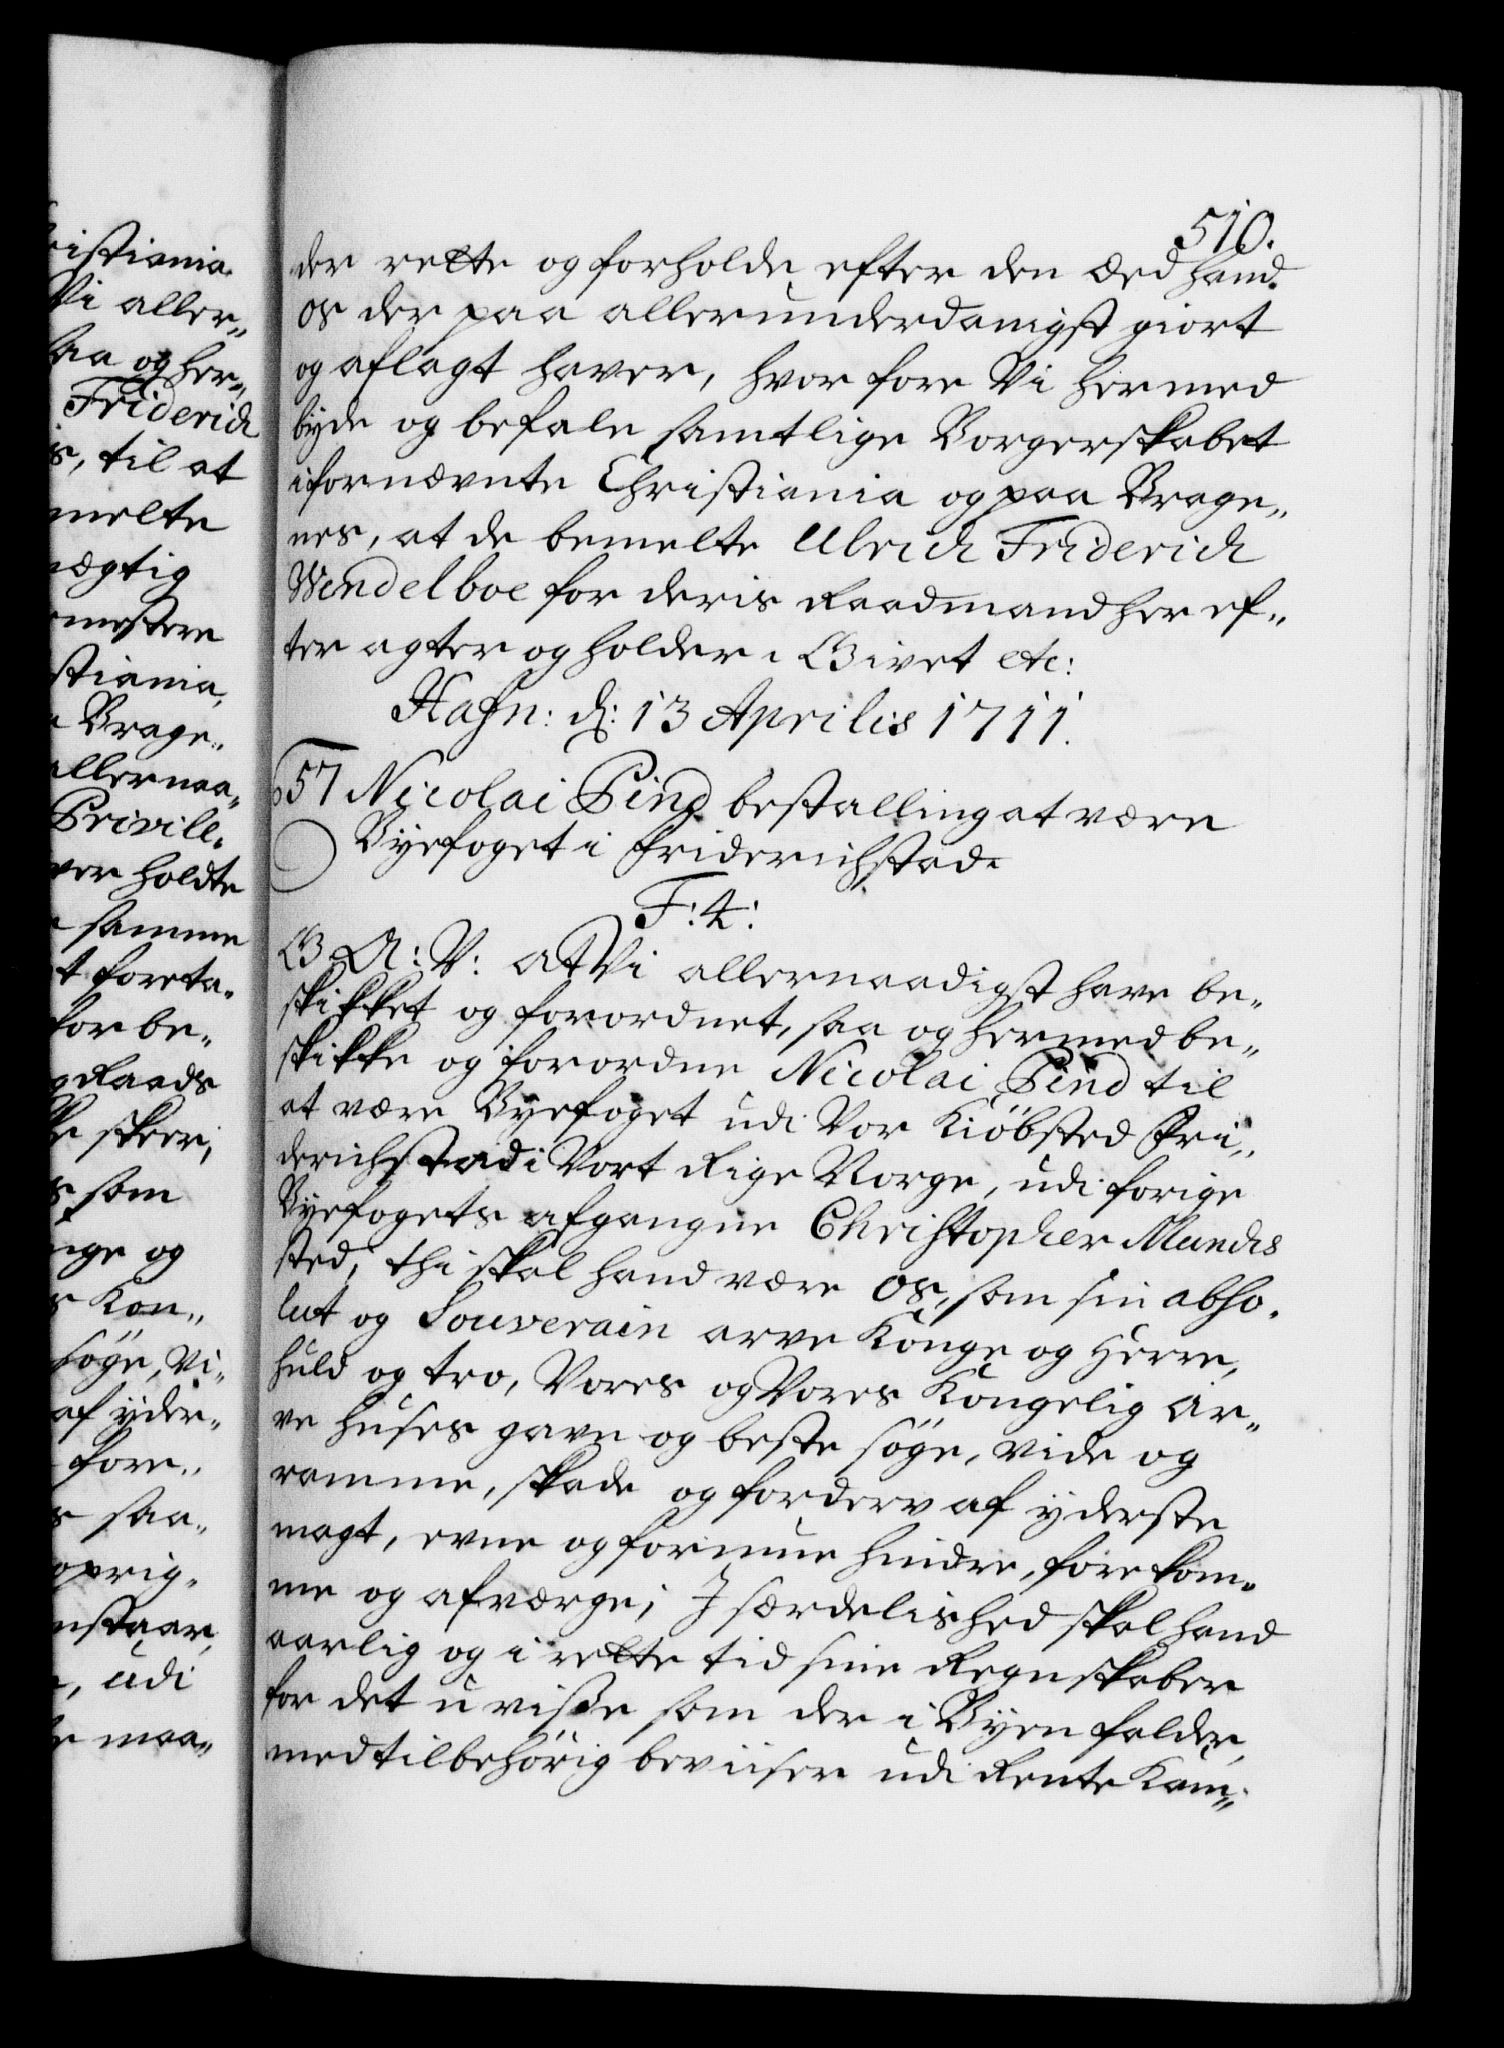 istiania
Vi aller„
saa og her„
Friderich
s, til at
melte
ægtig
mestere
stiania,
Brage„
allernaa„
Privile„
ver holdte
samme
t foreta„
for be„
g Raads
skeer,
s som
nge og
s Kon„
söge, vi„
af yder„
fore„
s saa„
oprig„
nstaar,
, udi
maa„
510.
der rette og forholde efter den Æed hand
os der paa allerunderdanigst giort
og aflagt haver, hvor fore Vi hermed
byde og befale samtlige Borgerskabet
i fornævnte Christiania og paa Brage„
nes, at de bemelte Ulrich Friderich
Wendelboe for deris Raadmand her ef„
ter agter og holder. Givet etc:
Hafn: d: 13 Aprilis 1711.
57 Nicolai Pind bestalling at være
Byefoget i Friderichstad.
F: 4:
G. A: V: At Vi allernaadigst have be„
skikket og forordnet, saa og hermed be„
skikke og forordne Nicolai Pind til
at være Byefoget udi Vor Kiöbsted Fri„
derichstad i Vort Rige Norge, udi forige
Byefogets afgangne Christopher Mundes
sted, thi skal hand være Os, som sin abso„
lut og Souverain arve Konge og Herre,
huld og tro, Vores og Vores Kongelig Ar„
ve Huses gavn og beste söge, vide og
ramme, skade og forderv af yderste
magt, evne og formue hindre, forekom„
me og afværge; Jsærdelished skal hand
aarlig og i rette tid sine Regnskaber
for det uvisse som der i Byen falder,
med tilbehörig beviiser udi Rente Kam„